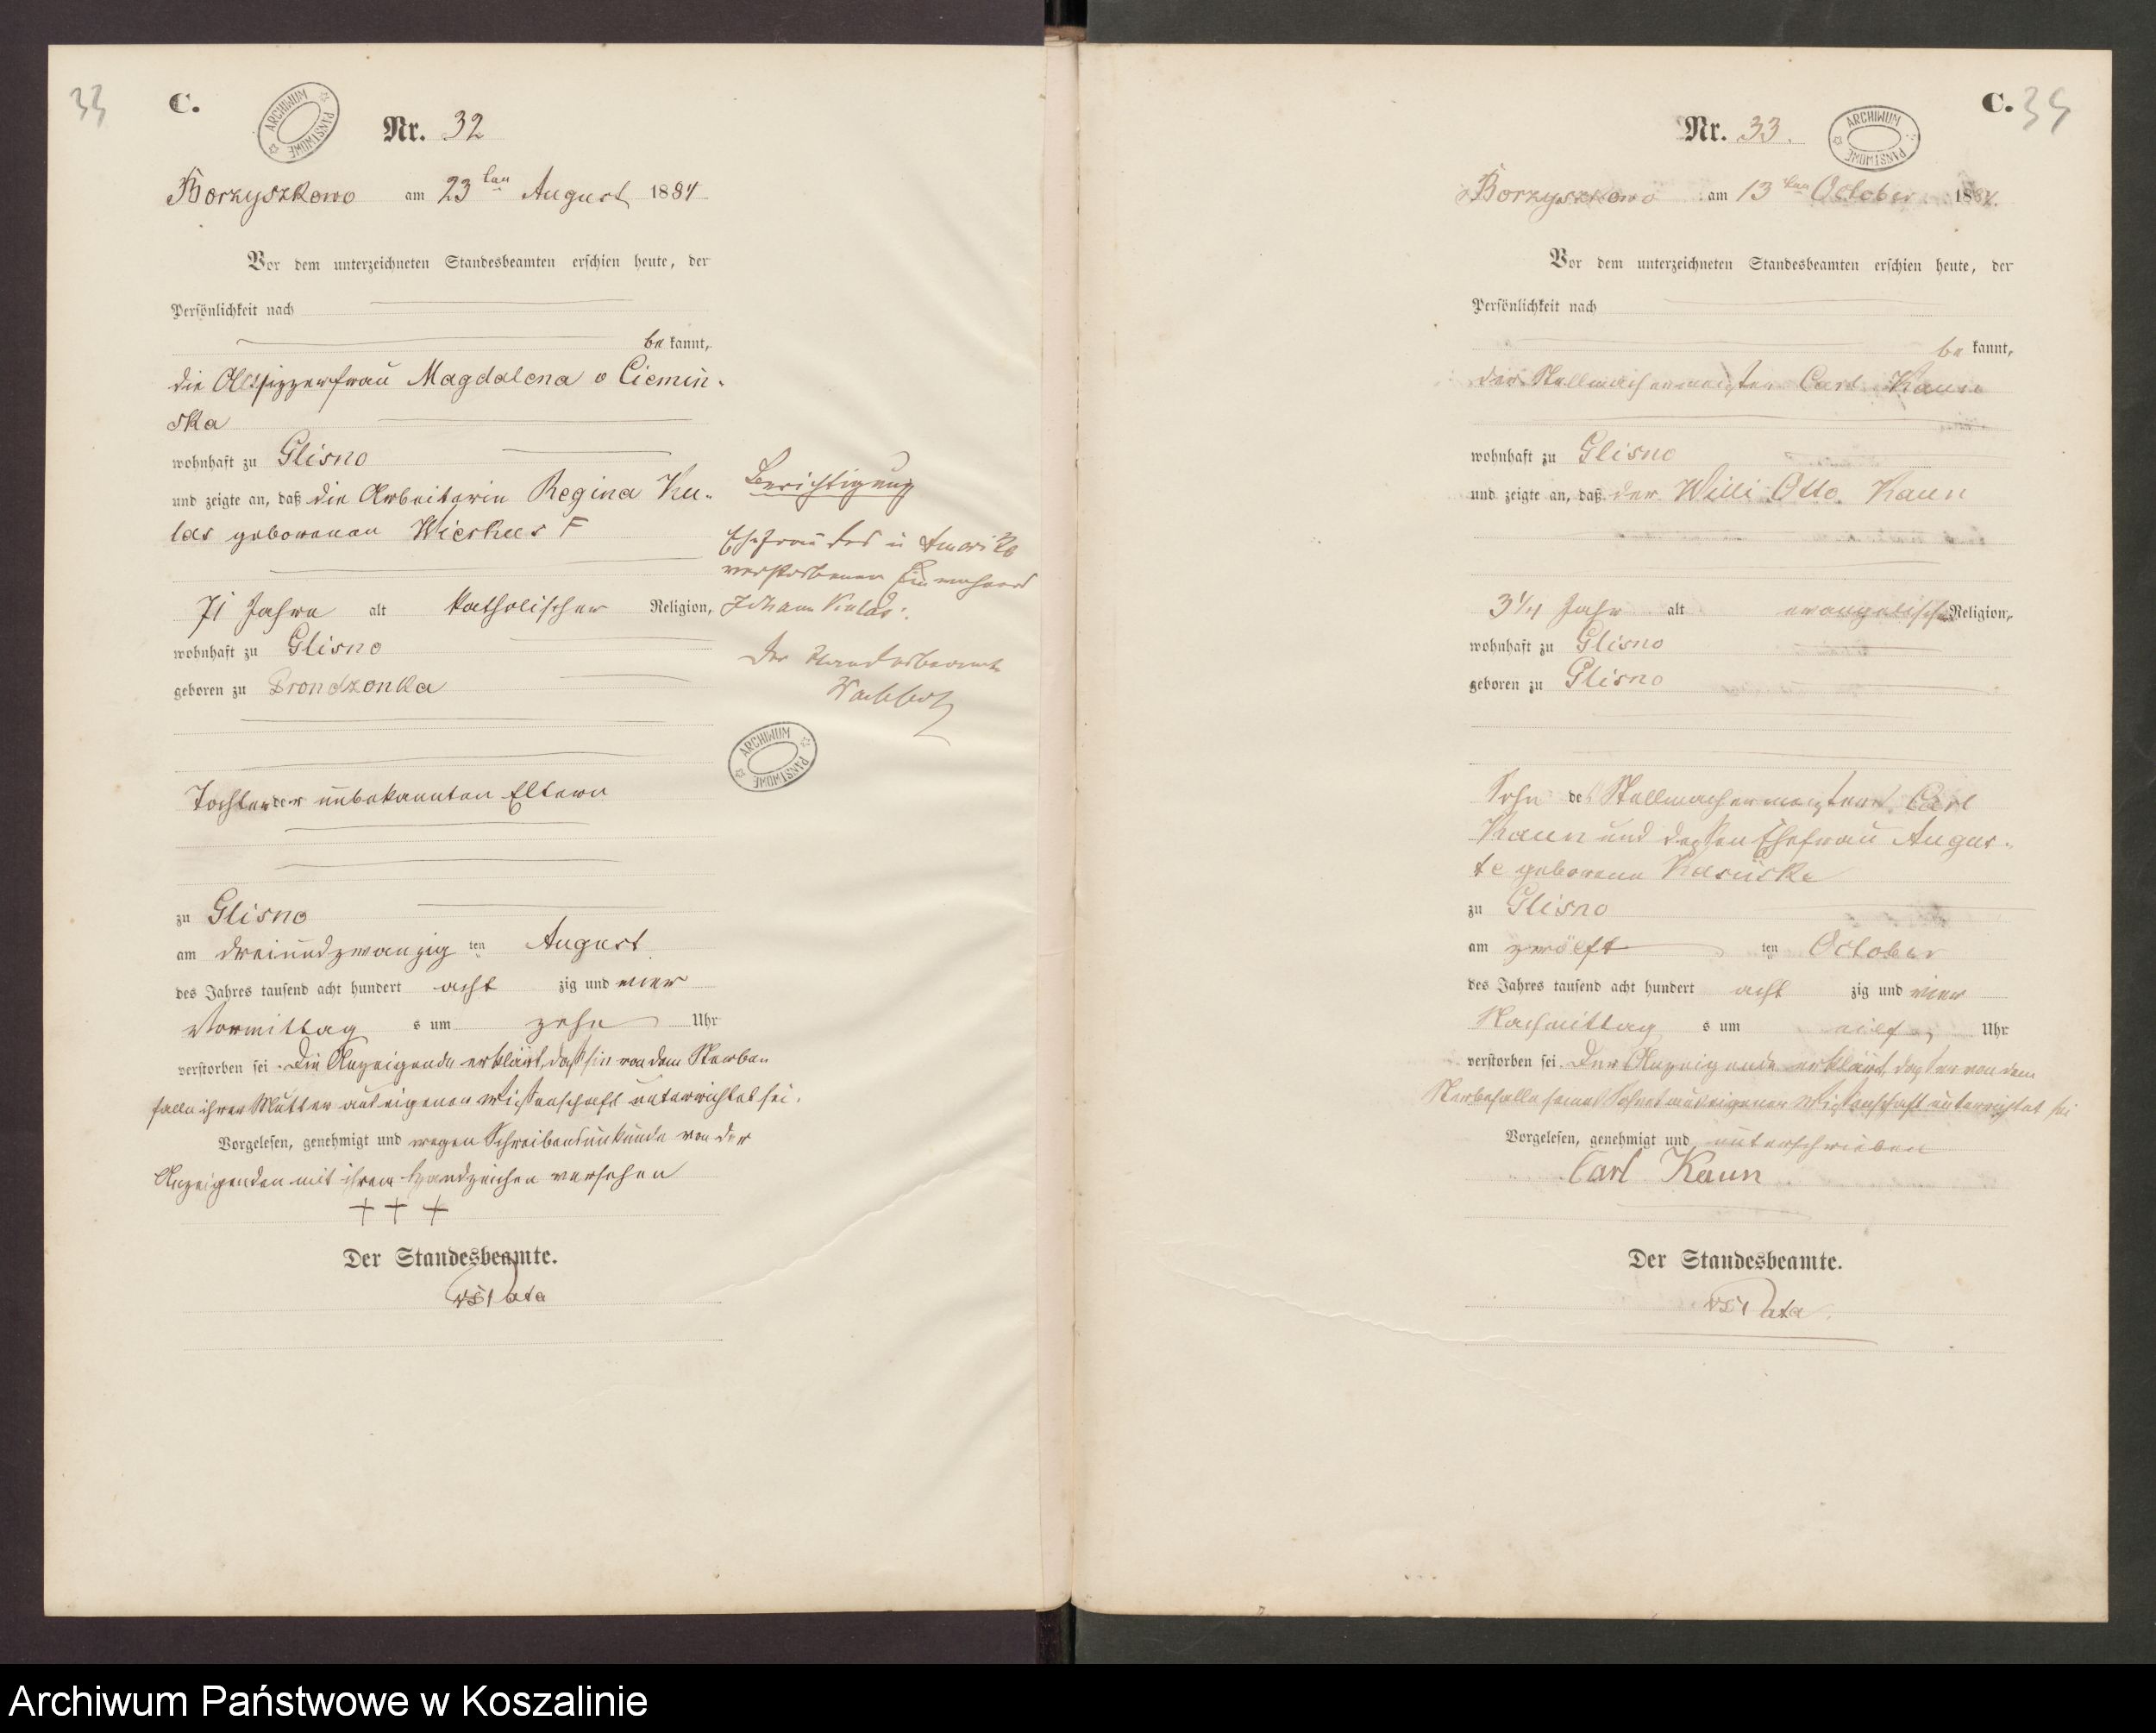 33
C.
ARCHIWUM PAŃSTWOWE
Nr. 32
Borzyszkowo am 23ten August 1884
Vor dem unterzeichneten Standesbeamten erschien heute, der
Persönlichkeit nach
be kannt,
die Altsitzerfrau Magdalena v Ciemin-
ska
wohnhaft zu Glisno
und zeigte an, daß die Arbeiterin Regina Ku-
las geborenen Wieskus
71 Jahre alt katholischer Religion,
wohnhaft zu Glisno
geboren zu Prondzonka
Tochter der unbekannten Eltern
zu Glisno
am dreiundzwanzig ten August
des Jahres tausend acht hundert acht zig und vier
Vormittag s um zehn Uhr
verstorben sei. Die Anzeigende erklärt, daß sie von dem Sterbe-
falle ihrer Mutter aus eigener Wissenschaft unterrichtet sei.
Vorgelesen, genehmigt und wegen Schreibensunkunde von der
Anzeigenden mit ihrem Handzeichen versehen
+ + +
Der Standesbeamte.
Berichtigung
Ehefrau des in Amerika
verstorbenen
Johann Kulas.
Der Standesbeamte
ARCHIWUM PAŃSTWOWE
C. 34
Nr. 33.
ARCHIWUM PAŃSTWOWE
Borzyszkowo am 13ten October 1884.
Vor dem unterzeichneten Standesbeamten erschien heute, der
Persönlichkeit nach
be kannt,
der Stellmachermeister Carl Kaun
wohnhaft zu Glisno
und zeigte an, daß der Willi Otto Kaun
3 1/4 Jahr alt evangelischer Religion,
wohnhaft zu Glisno
geboren zu Glisno
Sohn des Stellmachermeisters Carl
Kaun und dessen Ehefrau Augus-
te geborene
zu Glisno
am zwölft ten October
des Jahres tausend acht hundert acht zig und vier
Nachmittag s um Uhr
verstorben sei. Der Anzeigende erklärt, daß er von dem
Sterbefalle seines Sohnes aus eigener Wissenschaft unterrichtet sei
Vorgelesen, genehmigt und unterschrieben
Carl Kaun
Der Standesbeamte.
Archiwum Państwowe w Koszalinie